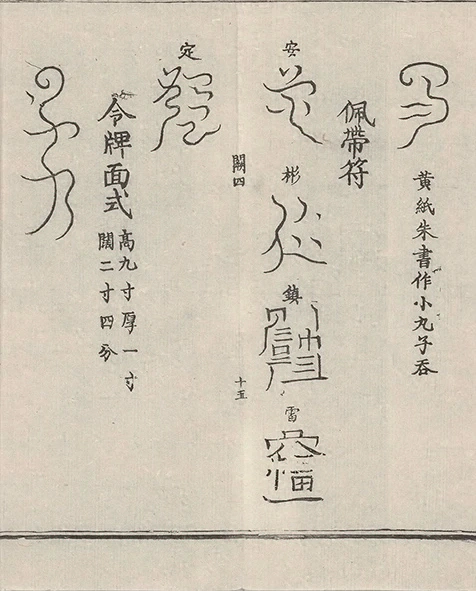 黃紙朱書作小丸子吞
佩帶符
安
彬
鎮
雷
關四
十五
定
令牌面式
高九寸厚一寸
闊二寸四分